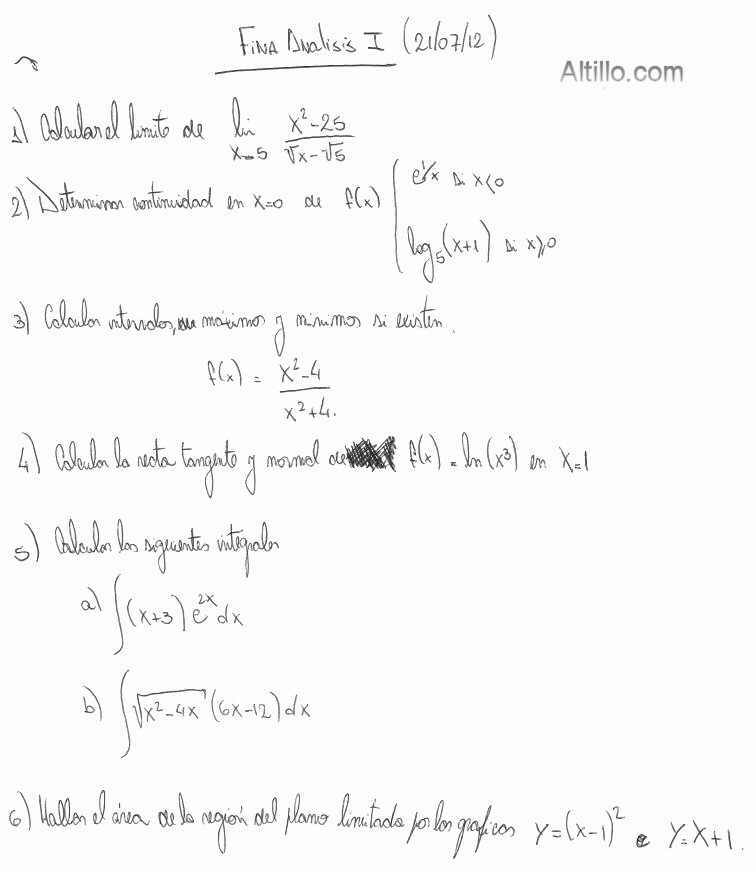 Final Analisis I (21/07/12)
Altillo.com
1) Calcular el limite de lim x→5 x²-25 / √x-√5
2) Determinar continuidad en x=0 de f(x) { e^1/x si x<0
log₅(x+1) si x≥0
3) Calcular intervalos, máximos y mínimos si existen.
f(x) = x²-4 / x²+4.
4) Calcular la recta tangente y normal de f(x) = ln(x³) en x=1
5) Calcular las siguientes integrales
a) ∫(x+3) e^2x dx
b) ∫√x²-4x (6x-12) dx
6) Hallar el área de la región del plano limitada por los graficos y=(x-1)² e y=x+1.